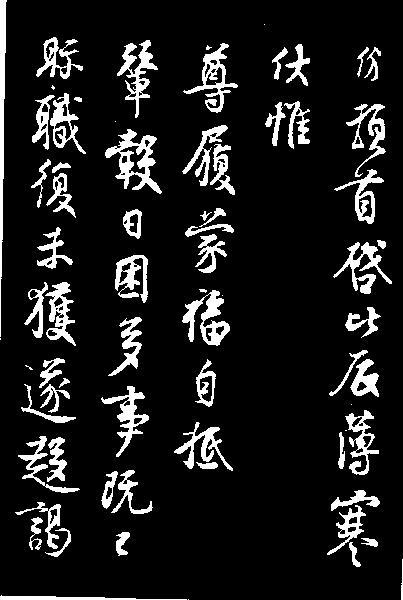 份頓首啓比辰薄寒
伏惟
尊履蒙福自抵
輦轂日困多事既已
縣職復未獲遂趨謁